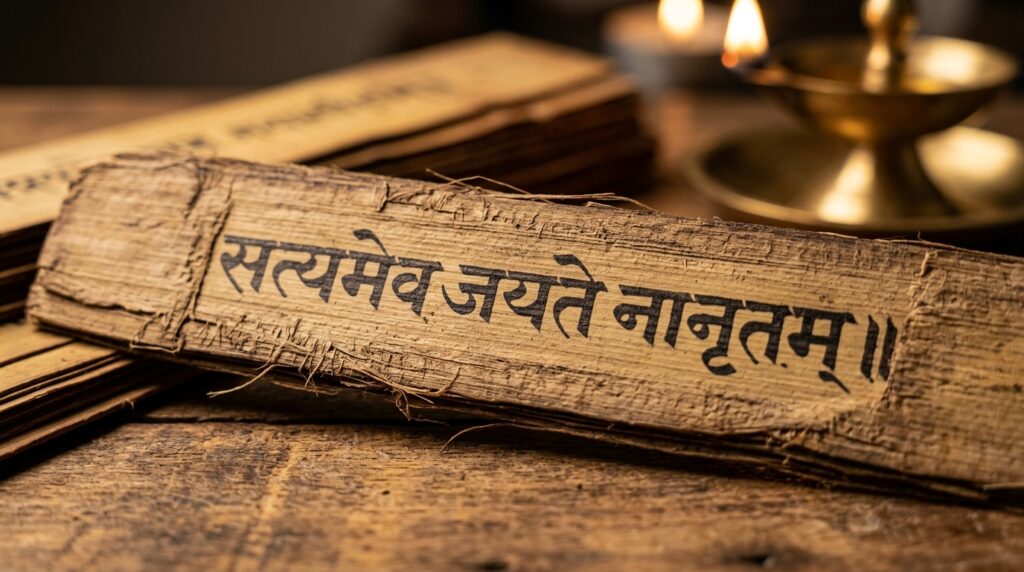 सत्यमेव जयते नानृतम् ॥